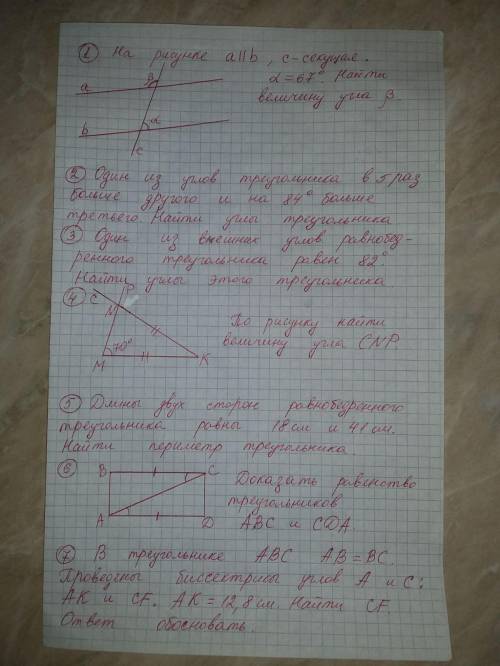 ① На рисунке a∥b, c-секущая.
α=67° Найти
величину угла β.
a
β
b
α
c
② Один из углов треугольника в 5 раз
больше другого и на 84° больше
третьего. Найти углы треугольника
③ Один из внешних углов равнобед-
ренного треугольника равен 82°.
Найти углы этого треугольника
④ C P
N
70°
M K
По рисунку найти
величину угла CNP.
⑤ Длины двух сторон равнобедренного
треугольника равны 18 см и 41 см.
Найти периметр треугольника
⑥ B C
A D
Доказать равенство
треугольников
ABC и CDA.
⑦ В треугольнике ABC AB=BC.
Проведены биссектрисы углов A и C:
AK и CF. AK=12,8 см. Найти CF.
Ответ обосновать.